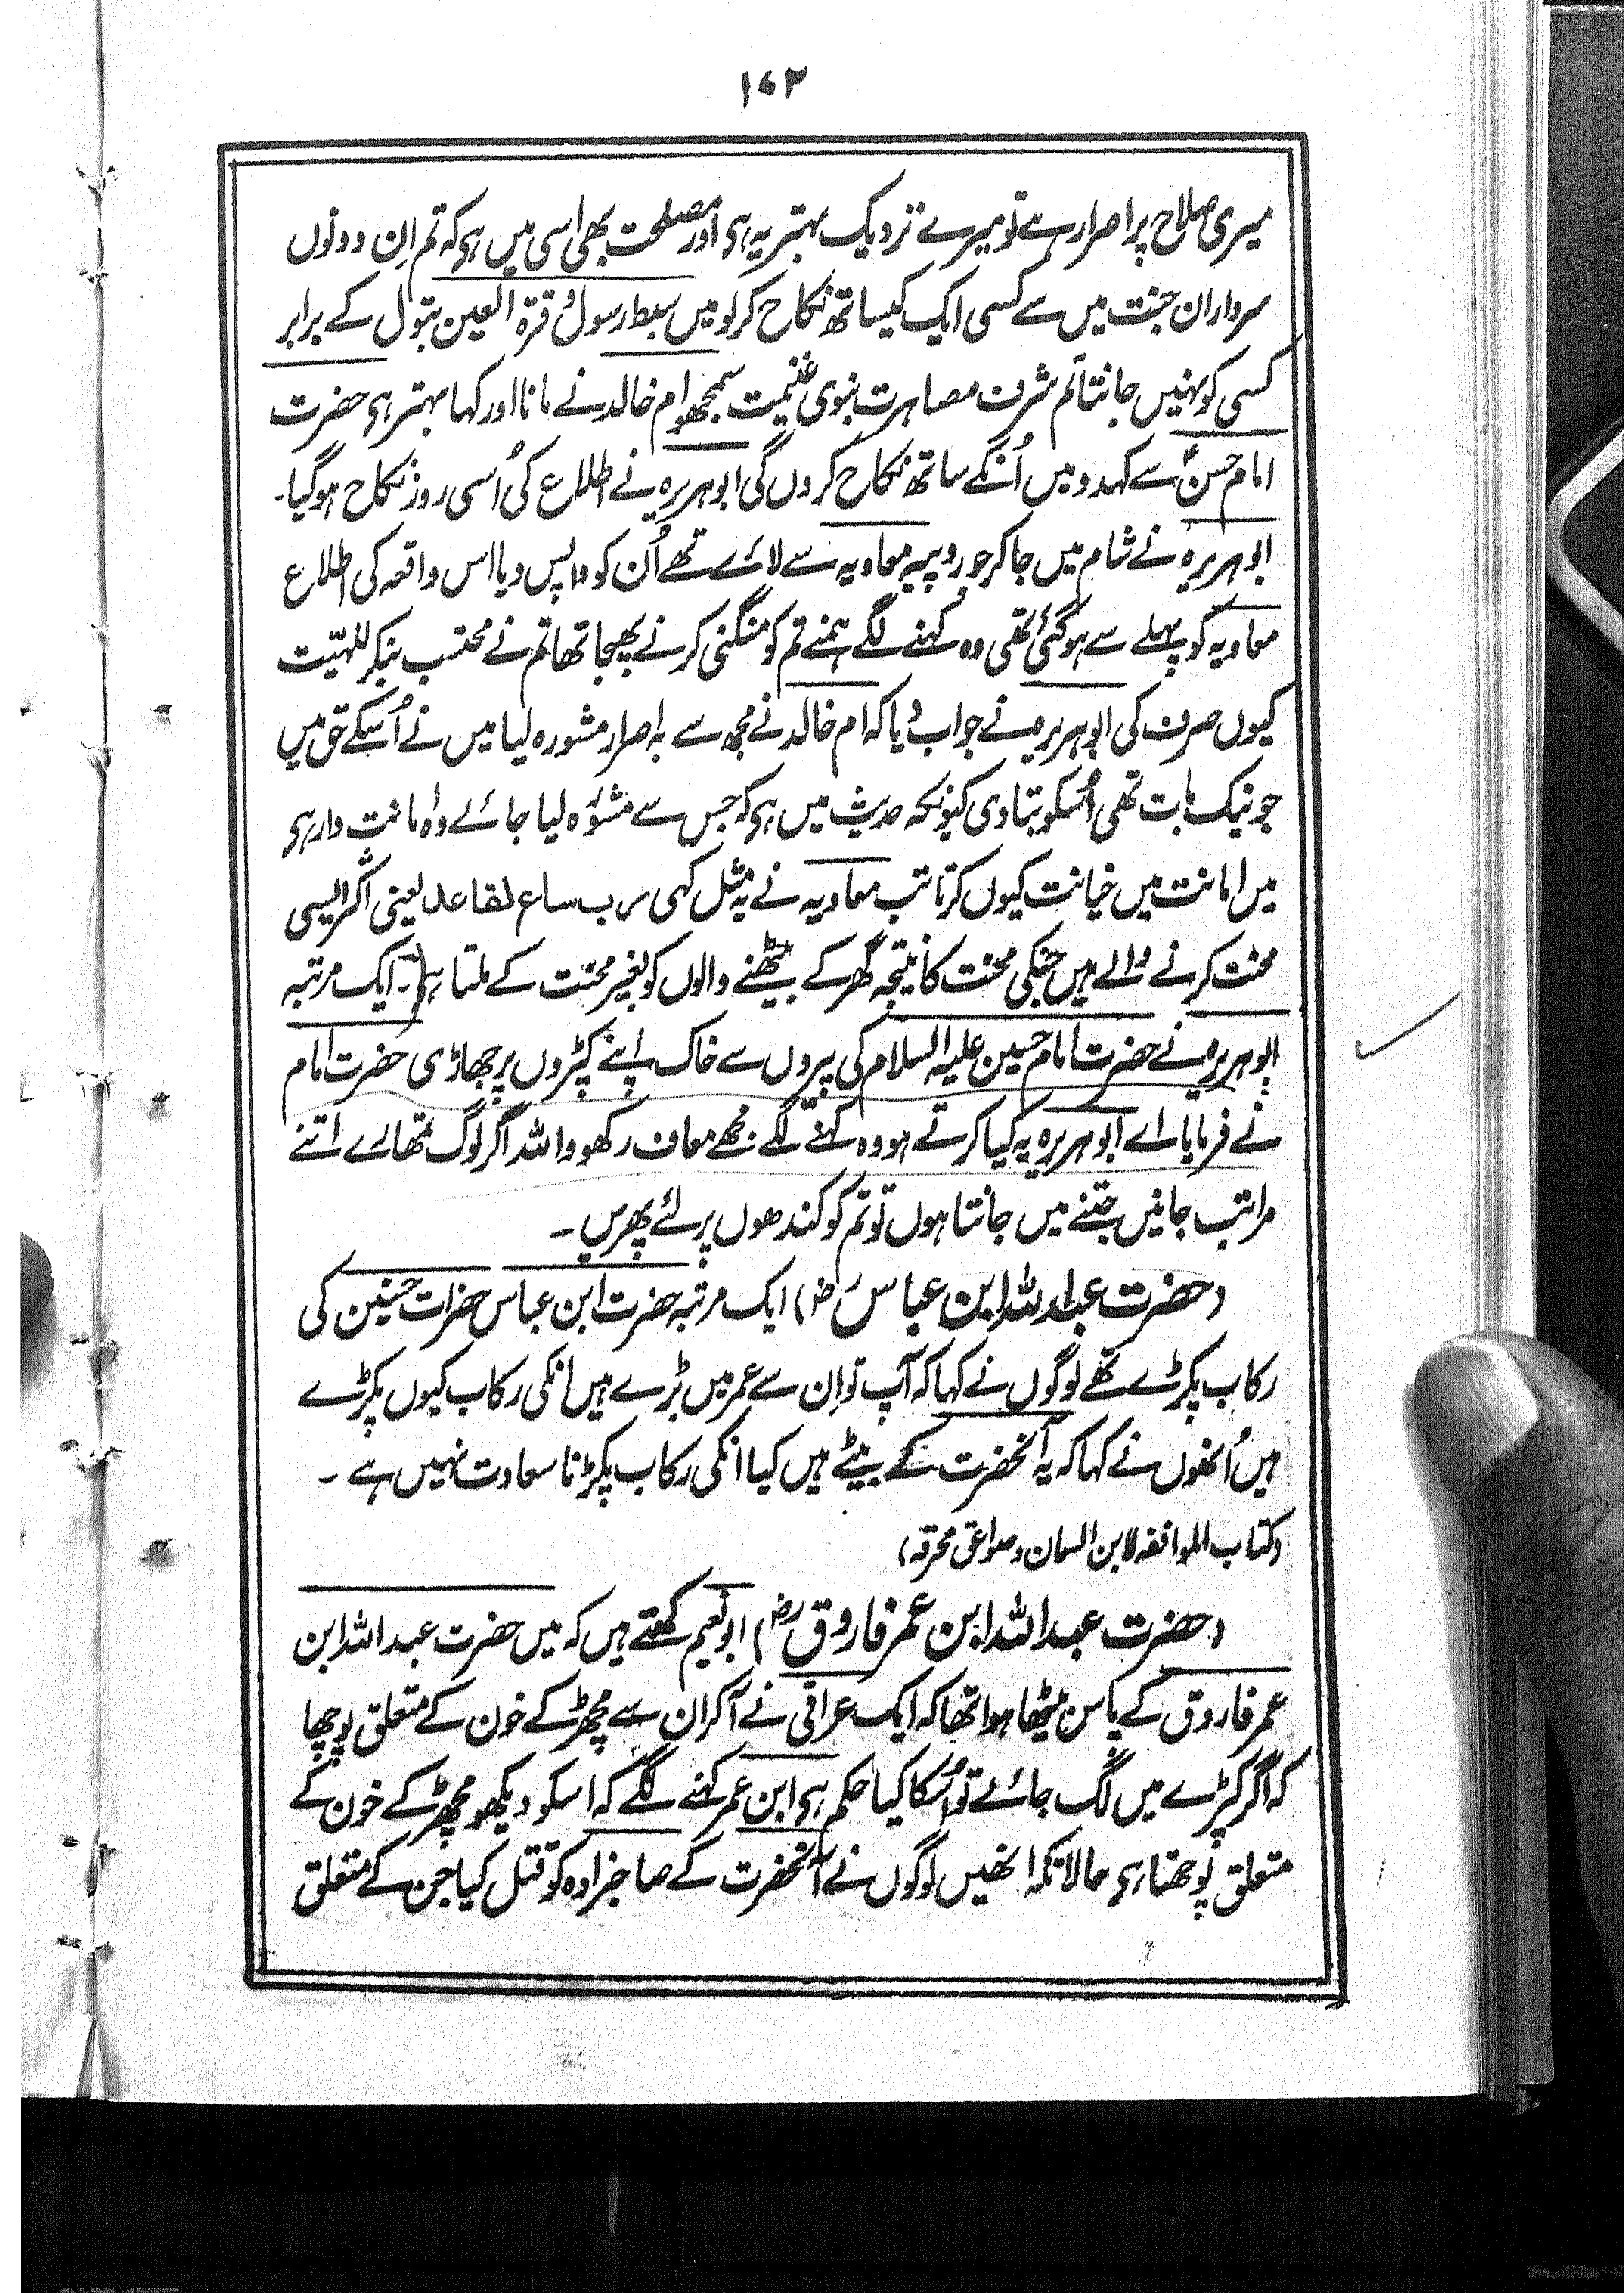 ۱۷۲
میری صلاح پر اصرار ہے تو میرے نزدیک بہتر یہ ہی اور مصلحت بھی اسی میں ہی کہ تم اِن دونوں
سرداران جنت میں سے کسی ایک کیساتھ نکاح کر لو میں سبط رسولؐ قرۃ العین بتول کے برابر
کسی کو نہیں جانتا تم شرف مصاہرت نبوی غنیمت سمجھو ام خالد نے مانا اور کہا بہتر ہی حضرت
امام حسنؑ سے کہدو میں اُنکے ساتھ نکاح کروں گی ابوہریرہ نے اطلاع کی اُسی روز نکاح ہوگیا۔
ابوہریرہ نے شام میں جاکر جو روپیہ معاویہ سے لائے تھے اُن کو واپس دیا اس واقعہ کی اطلاع
معاویہ کو پہلے سے ہوگئی تھی وہ کہنے لگے ہمنے تم کو منگنی کرنے بھیجا تھا تم نے محتسب بنکر للہیّت
کیوں صرف کی ابوہریرہ نے جواب دیا کہ ام خالد نے مجھ سے بہ اصرار مشورہ لیا میں نے اُسکے حق میں
جو نیک بات تھی اُسکو بتادی کیونکہ حدیث میں ہی کہ جس سے مشورہ لیا جائے وہ امانت دار ہی
میں امانت میں خیانت کیوں کرتا تب معاویہ نے یہ مثل کہی رب ساع لقاعد یعنی اکثر ایسی
محنت کرنے والے ہیں جنکی محنت کا نتیجہ گھر کے بیٹھنے والوں کو بغیر محنت کے ملتا ہی۔ ایک مرتبہ
ابوہریرہ نے حضرت امام حسین علیہ السلام کی پیروں سے خاک اپنے کپڑوں پر جھاڑی حضرت امام
نے فرمایا اے ابوہریرہ یہ کیا کرتے ہو وہ کہنے لگے مجھے معاف رکھو واللہ اگر لوگ تمھارے اتنے
مراتب جانیں جتنے میں جانتا ہوں تو تم کو کندھوں پر لئے پھریں۔
(حضرت عبداللہ ابن عباس رض) ایک مرتبہ حضرت ابن عباس حضرات حسنین کی
رکاب پکڑے تھے لوگوں نے کہا کہ آپ تو اِن سے عمر میں بڑے ہیں انکی رکاب کیوں پکڑے
ہیں اُنھوں نے کہا کہ یہ آنحضرت کے بیٹے ہیں کیا انکی رکاب پکڑنا سعادت نہیں ہے۔
(کتاب الموافقہ لابن السمان و صواعق محرقہ)
(حضرت عبداللہ ابن عمر فاروق رض) ابونعیم کہتے ہیں کہ میں حضرت عبداللہ ابن
عمر فاروق کے پاس بیٹھا ہوا تھا کہ ایک عراقی نے آکر ان سے مچھڑ کے خون کے متعلق پوچھا
کہ اگر کپڑے میں لگ جائے تو اُسکا کیا حکم ہی ابن عمر کہنے لگے کہ اسکو دیکھو مچھڑ کے خون کے
متعلق پوچھتا ہی حالانکہ انھیں لوگوں نے آنحضرت کے صاحبزادہ کو قتل کیا جن کے متعلق